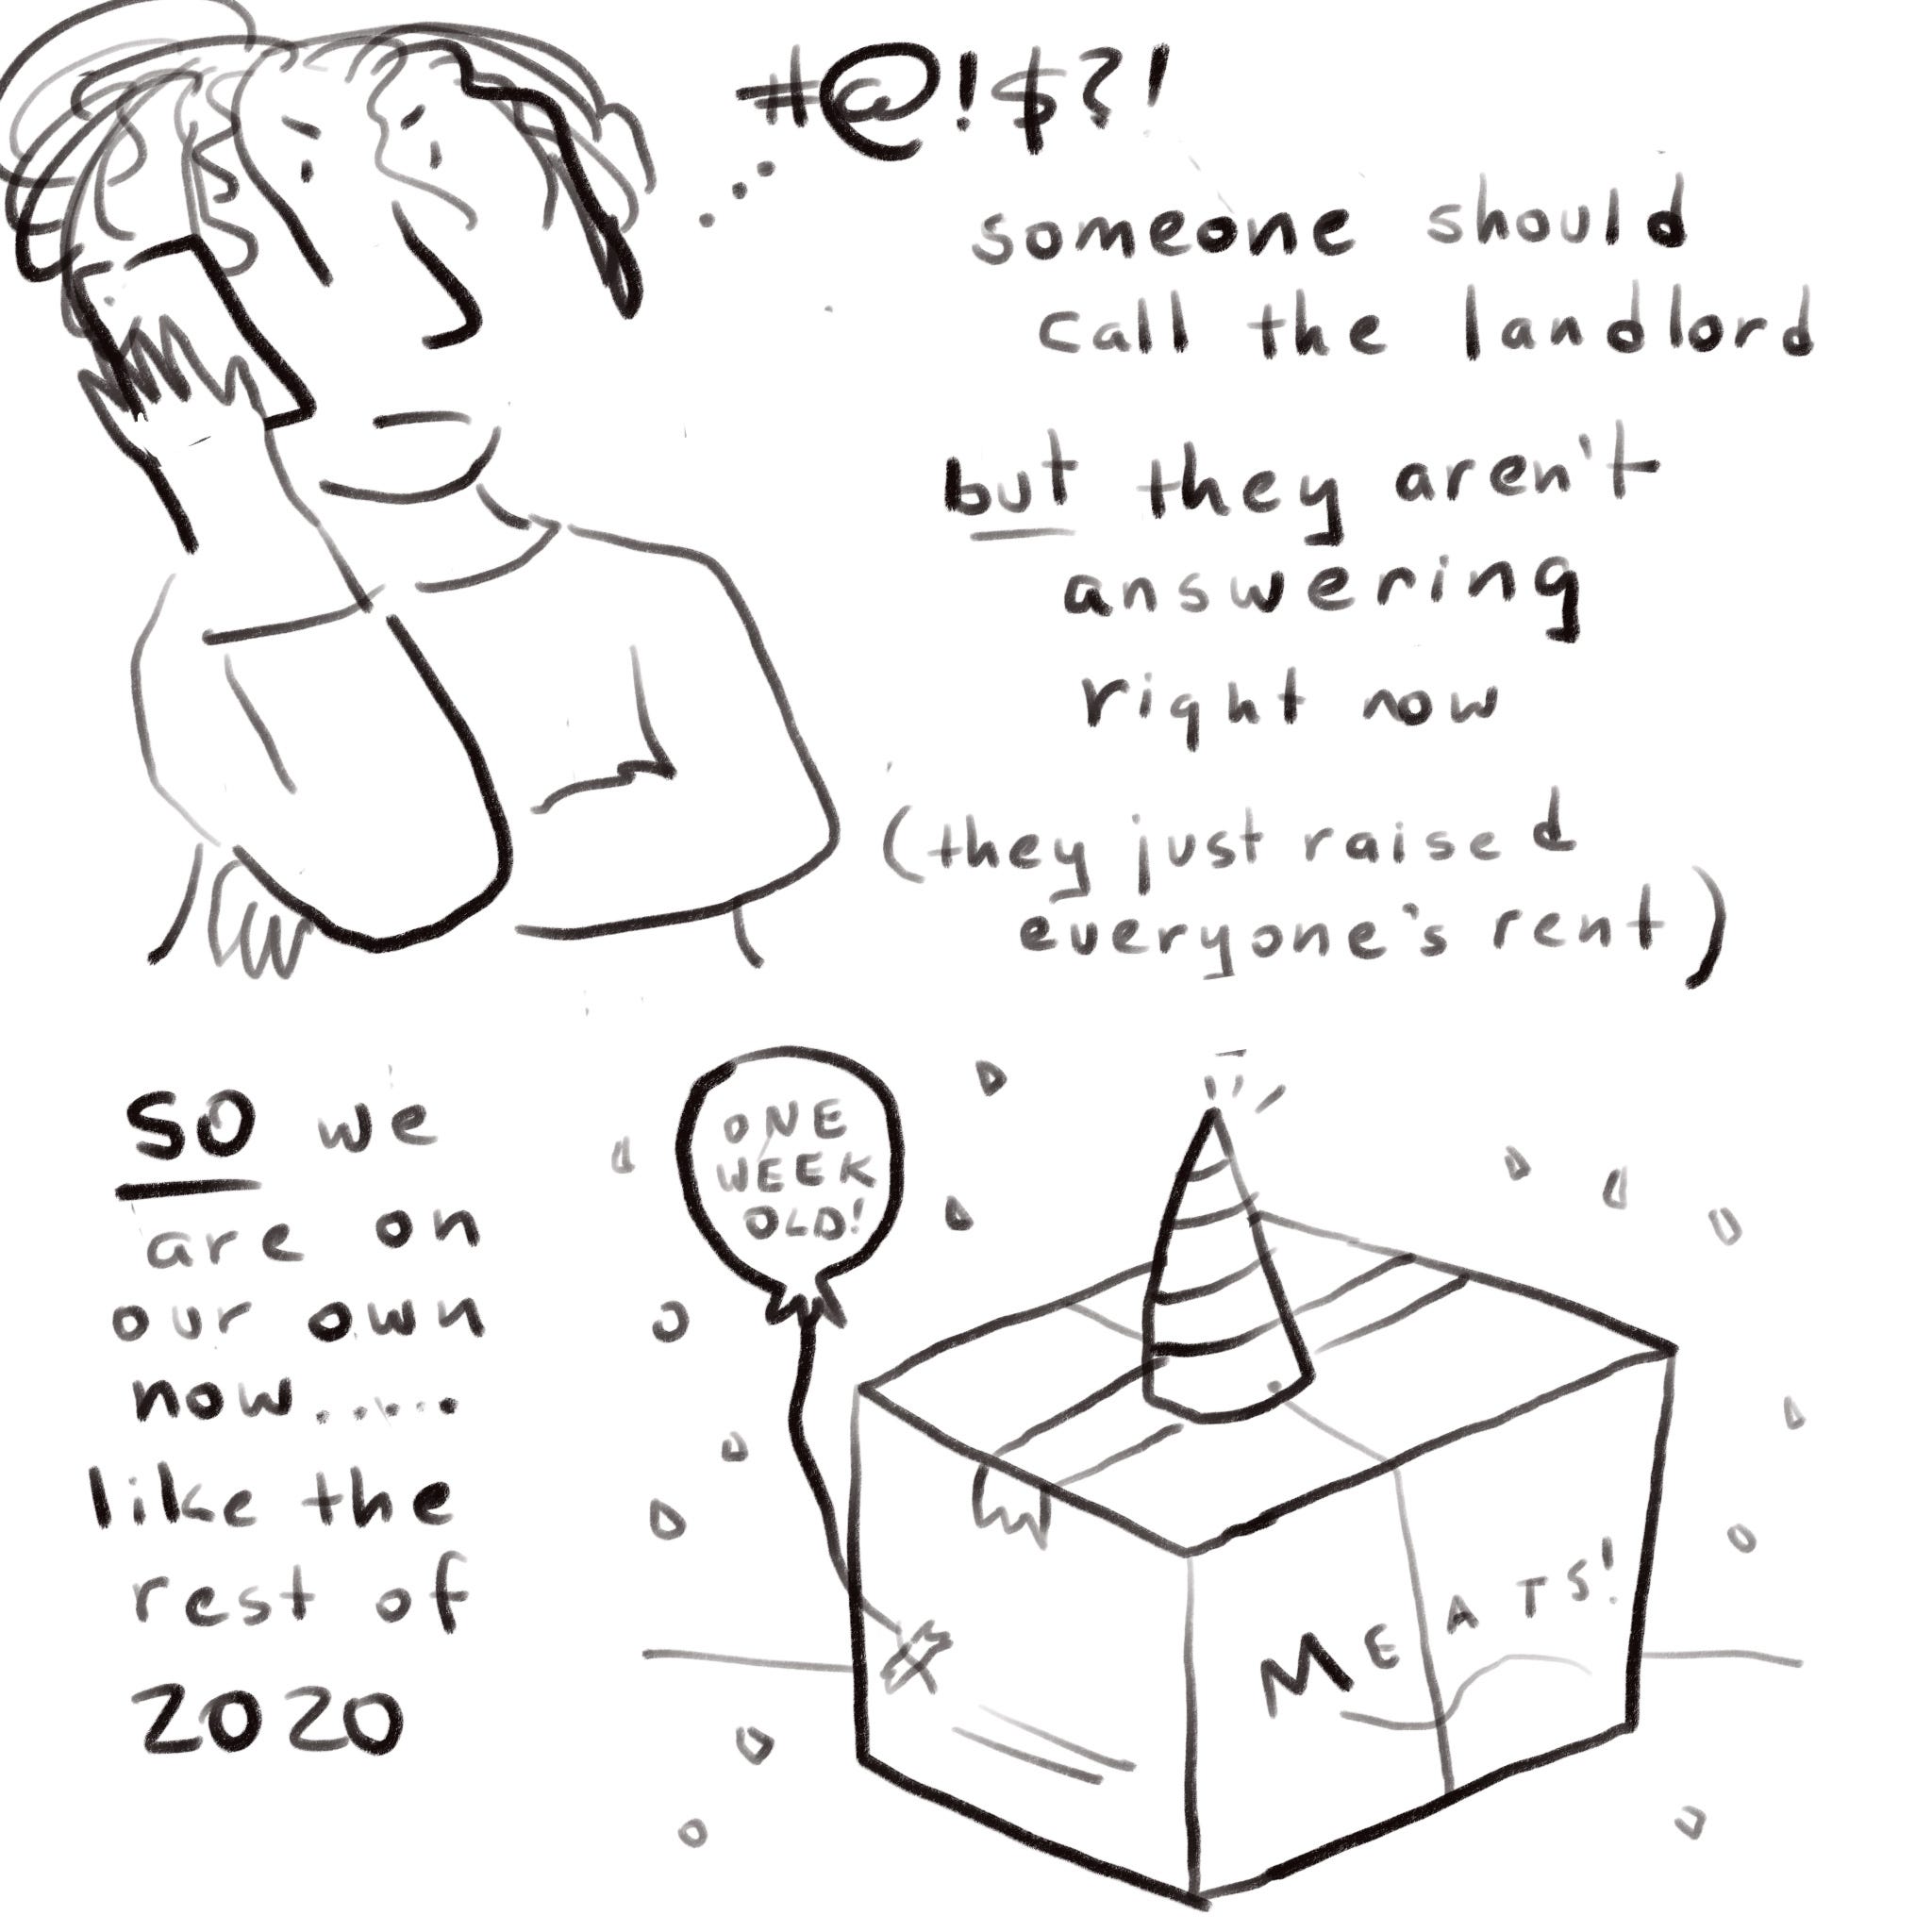 #@!$?!
someone should
call the landlord
but they aren't
answering
right now
(they just raised
everyone's rent)
SO we
are on
our own
now.....
like the
rest of
2020
ONE
WEEK
OLD!
MEATS!